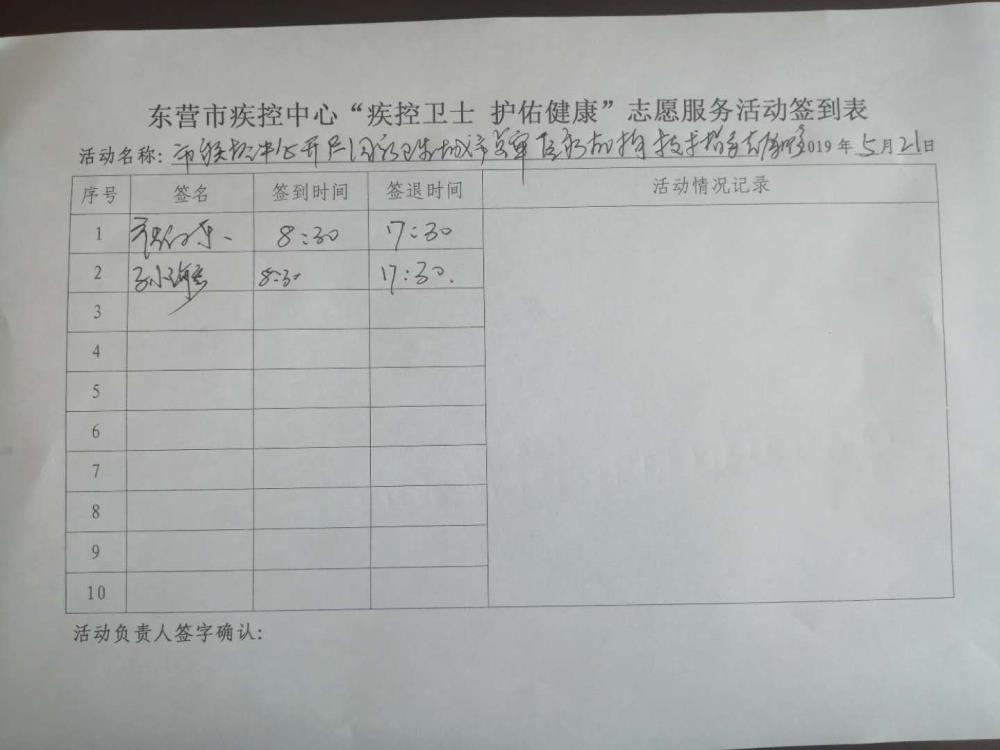 东营市疾控中心“疾控卫士 护佑健康”志愿服务活动签到表
活动名称: 市疾控中心开展国家卫生城市 019 年 5 月 21 日
序号 签名 签到时间 签退时间 活动情况记录
1 8:30 17:30
2 孙海 8:30 17:30.
3
4
5
6
7
8
9
10
活动负责人签字确认: